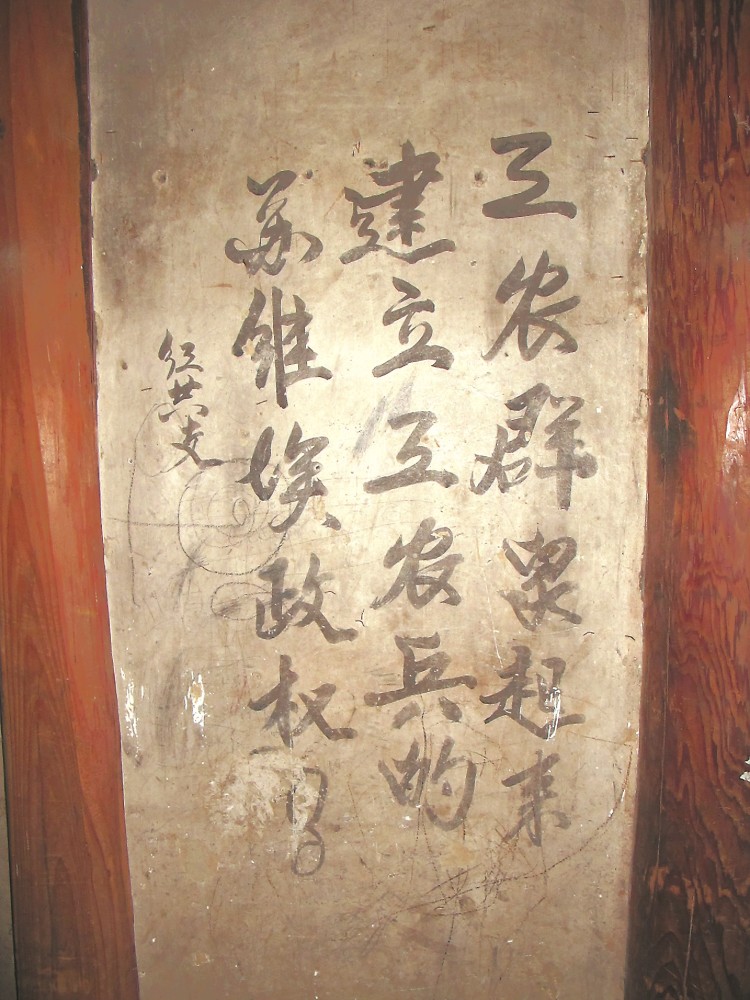 工农群众起来
建立工农兵的
苏维埃政权
红共支